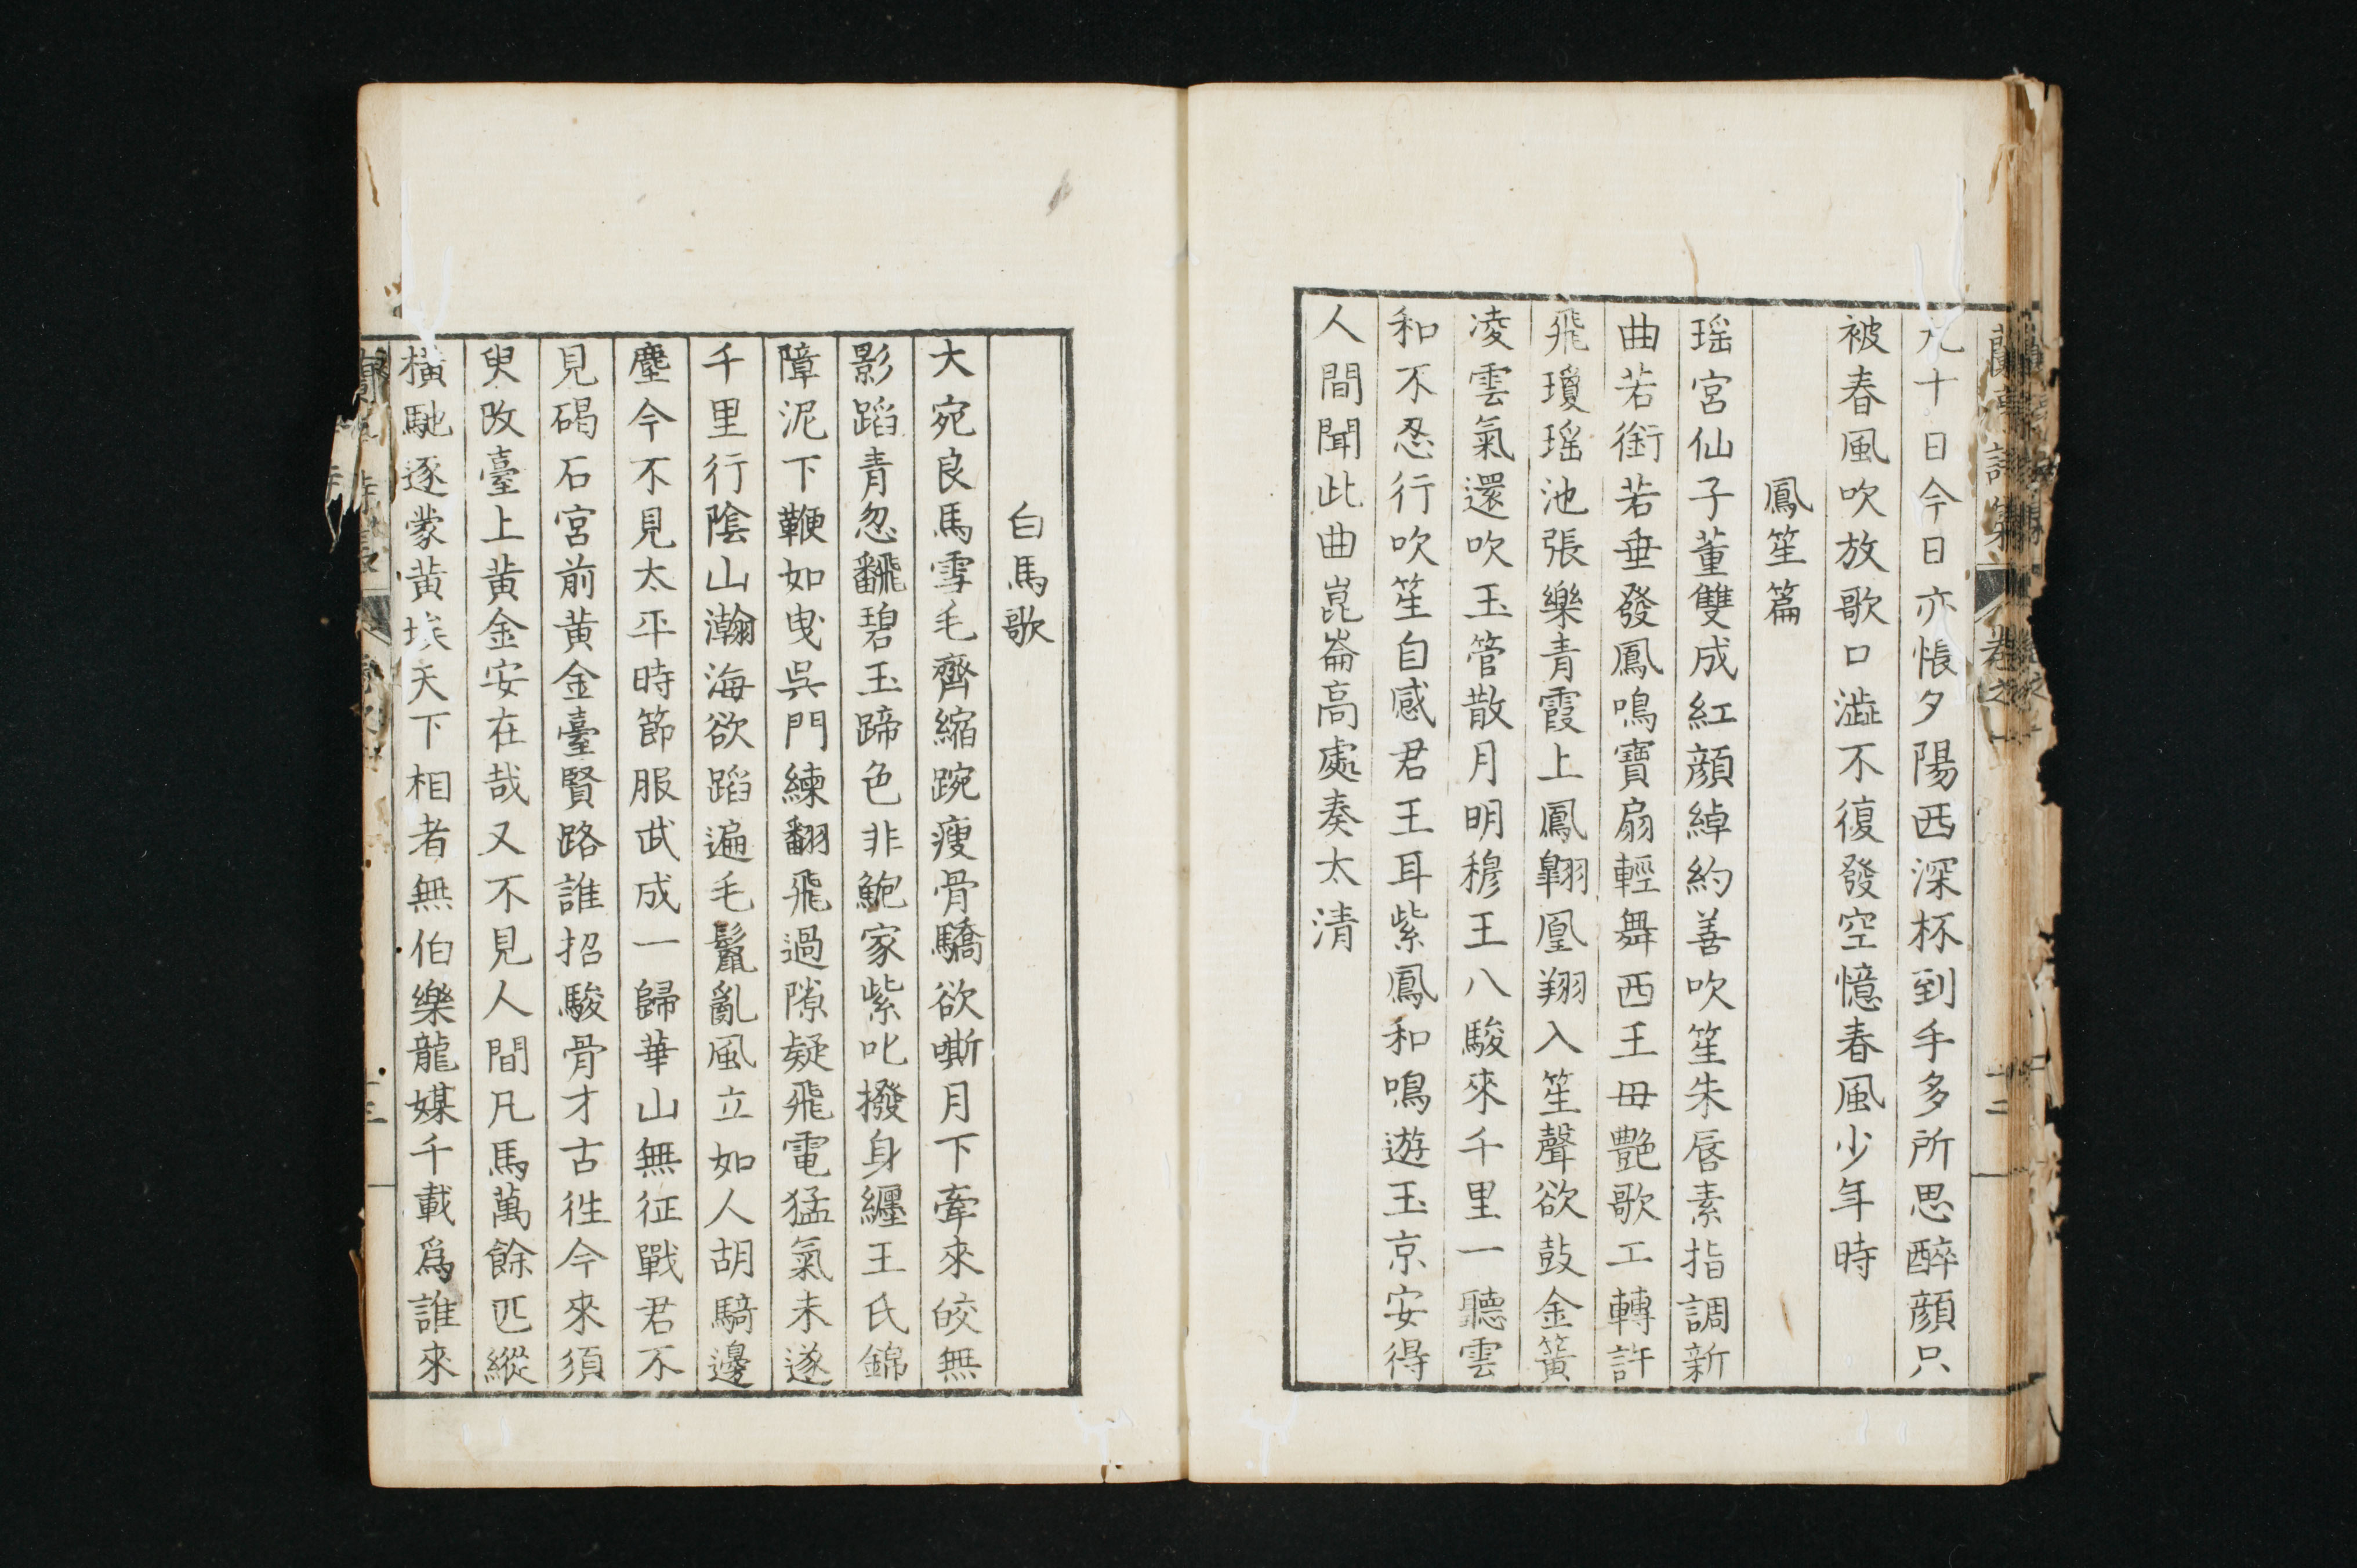 九十日今日亦悵夕陽西深杯到手多所思醉顔只
被春風吹放歌口澁不復發空憶春風少年時
鳳笙篇
瑶宮仙子董雙成紅顔綽約善吹笙朱唇素指調新
曲若銜若垂發鳳鳴寶扇輕舞西王母艶歌工轉許
飛瓊瑶池張樂青霞上鳳翺凰翔入笙聲欲鼓金簧
凌雲氣還吹玉管散月明穆王八駿來千里一聽雲
和不忍行吹笙自感君王耳紫鳳和鳴遊玉京安得
人間聞此曲崑崙高處奏太清
白馬歌
大宛良馬雪毛齊縮踠瘦骨驕欲嘶月下牽來皎無
影蹈青忽飜碧玉蹄色非鮑家紫叱撥身纒王氏錦
障泥下鞭如曳呉門練翻飛過隙疑飛電猛氣未遂
千里行隂山瀚海欲蹈遍毛鬣亂風立如人胡騎邊
塵今不見太平時節服武成一歸華山無征戰君不
見碣石宮前黄金臺賢路誰招駿骨才古徃今來須
臾改臺上黄金安在哉又不見人間凡馬萬餘匹縱
横馳逐蒙黄埃天下相者無伯樂龍媒千載爲誰來